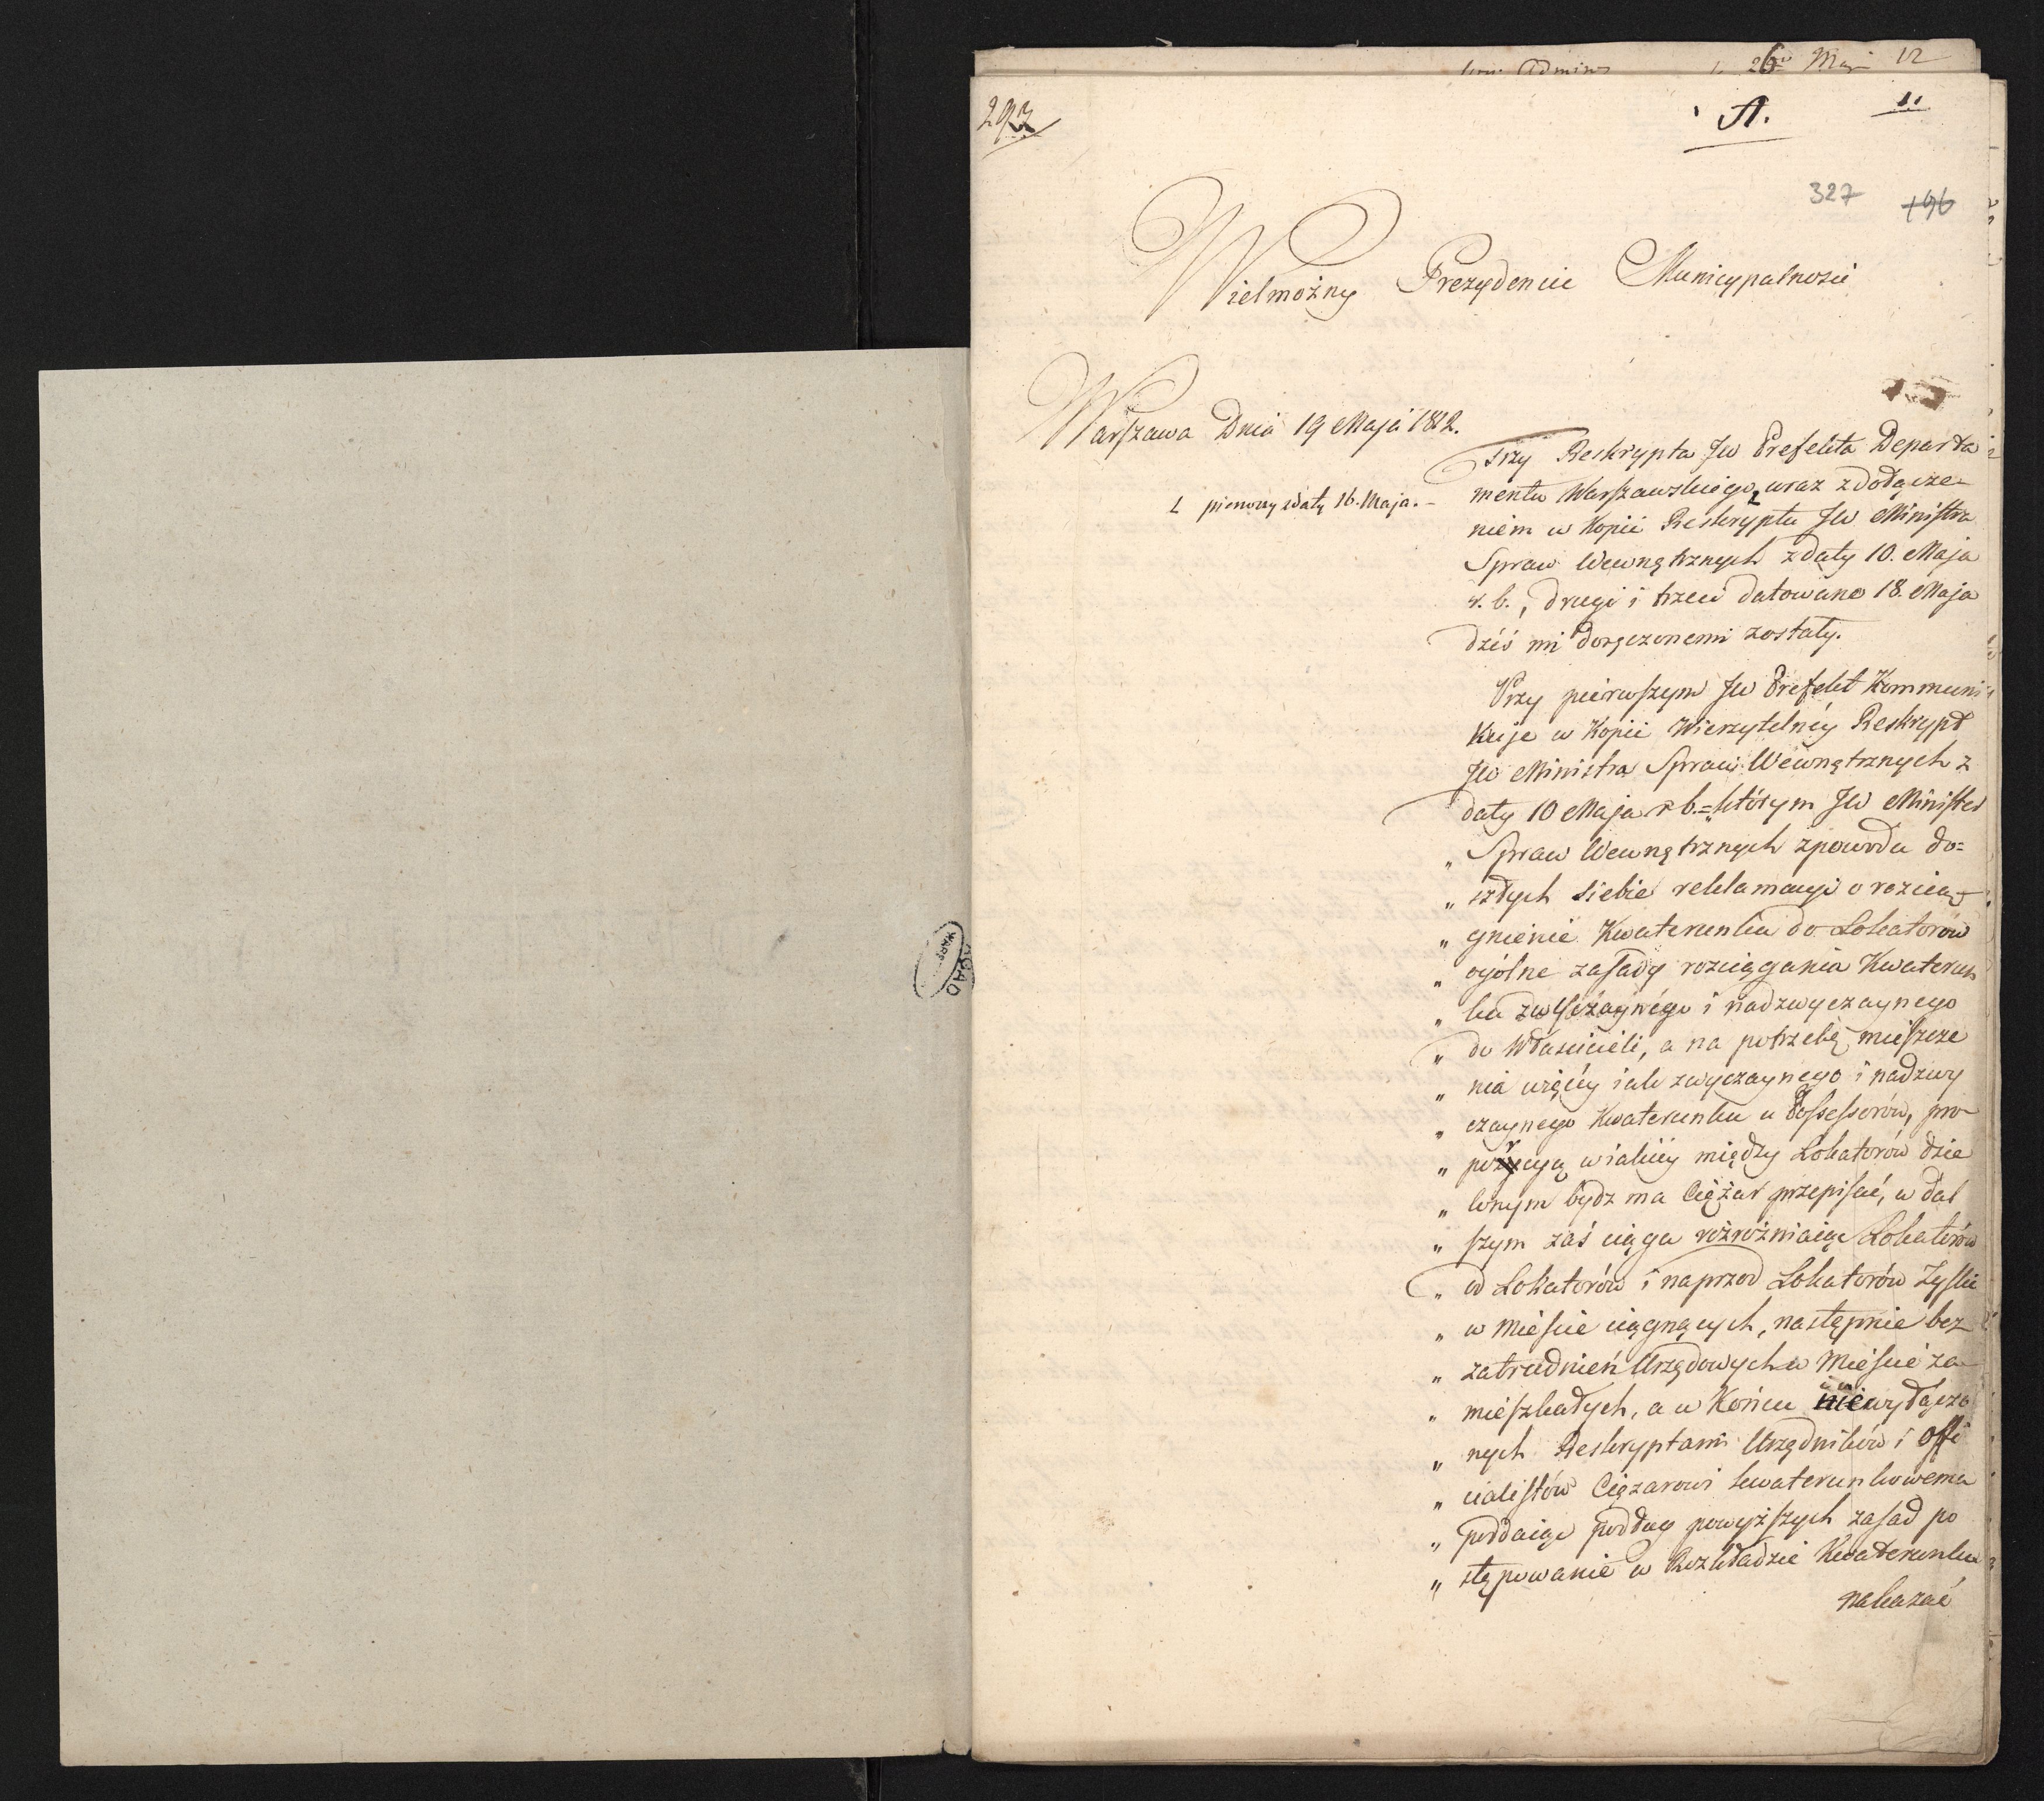 26 Maja 12
293
A.
11
327 196
Wielmożny Prezydencie Municypalnosci
Warszawa Dnia 19 Maja 1812.
Trzy Reskrypta JW Prefekta Departa
L pierwszy z daty 16. Maja. –
mentu Warszawskiego L wraz z dołącze–
niem w Kopii Reskryptu JW Ministra
Spraw Wewnętrznych z daty 10. Maja
r. b., drugi i trzeci datowane 18. Maja
dziś mi doręczonemi zostały.
Przy pierwszym JW Prefekt Kommuni
kuje w Kopii Wierzytelnéy Reskrypt
JW Ministra Spraw Wewnętrznych z
daty 10 Maja r b.= „którym JW Minister
„ Spraw Wewnętrznych z powodu do=
„ szłych siebie reklamacyi o rozcią–
„ gnienie Kwaterunku do Lokatorów
„ ogólne zasady rozciągania Kwaterun
„ ku zwyczaynégo i nadzwyczaynego
„ do Właścicieli, a na potrzebę mieszcze
„ nia więcéy iak zwyczaynego i nadzwy
„ czaynego Kwaterunku u Possessorów, pro–
„ porcyą w iakiéy między Lokatorów dzie
„ lonym bydz ma Ciężar przepisać, w dal
„ szym zaś ciągu rozrożniaiąc Lokatorów
„ od Lokatorów i naprzod Lokatorów Zyski
„ w Mieście ciągnących, następnie bez
„ zatrudnień Urzędowych w Mieście za–
„ mieszkałych, a w Końcu niewyłącza
„ nych Reskryptami Urzędników i Offi
„ cialistów Ciężarowi kwaterunkowemu
„ poddaiąc podług powyższych zasad po
„ stępowanie w Rozkładzie Kwaterunku
nakazać
AGAD
WARS